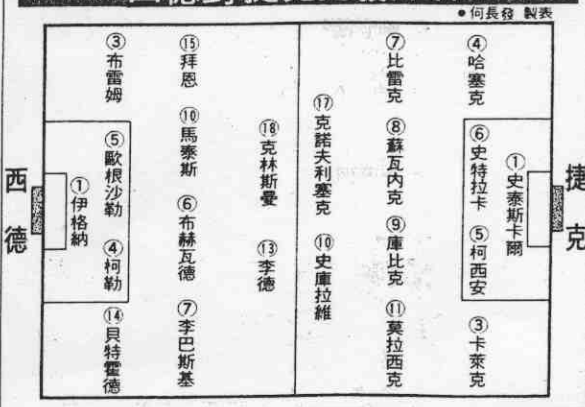 ●何長發 製表
西德
①伊格納
③布雷姆
⑤歐根沙勒
④柯勒
⑭貝特霍德
⑮拜恩
⑩馬泰斯
⑥布赫瓦德
⑦李巴斯基
⑱克林斯曼
⑬李德
⑰克諾夫利塞克
⑩史庫拉維
⑦比雷克
⑧蘇瓦內克
⑨庫比克
⑪莫拉西克
④哈塞克
⑥史特拉卡
⑤柯西安
③卡萊克
①史泰斯卡爾
捷克